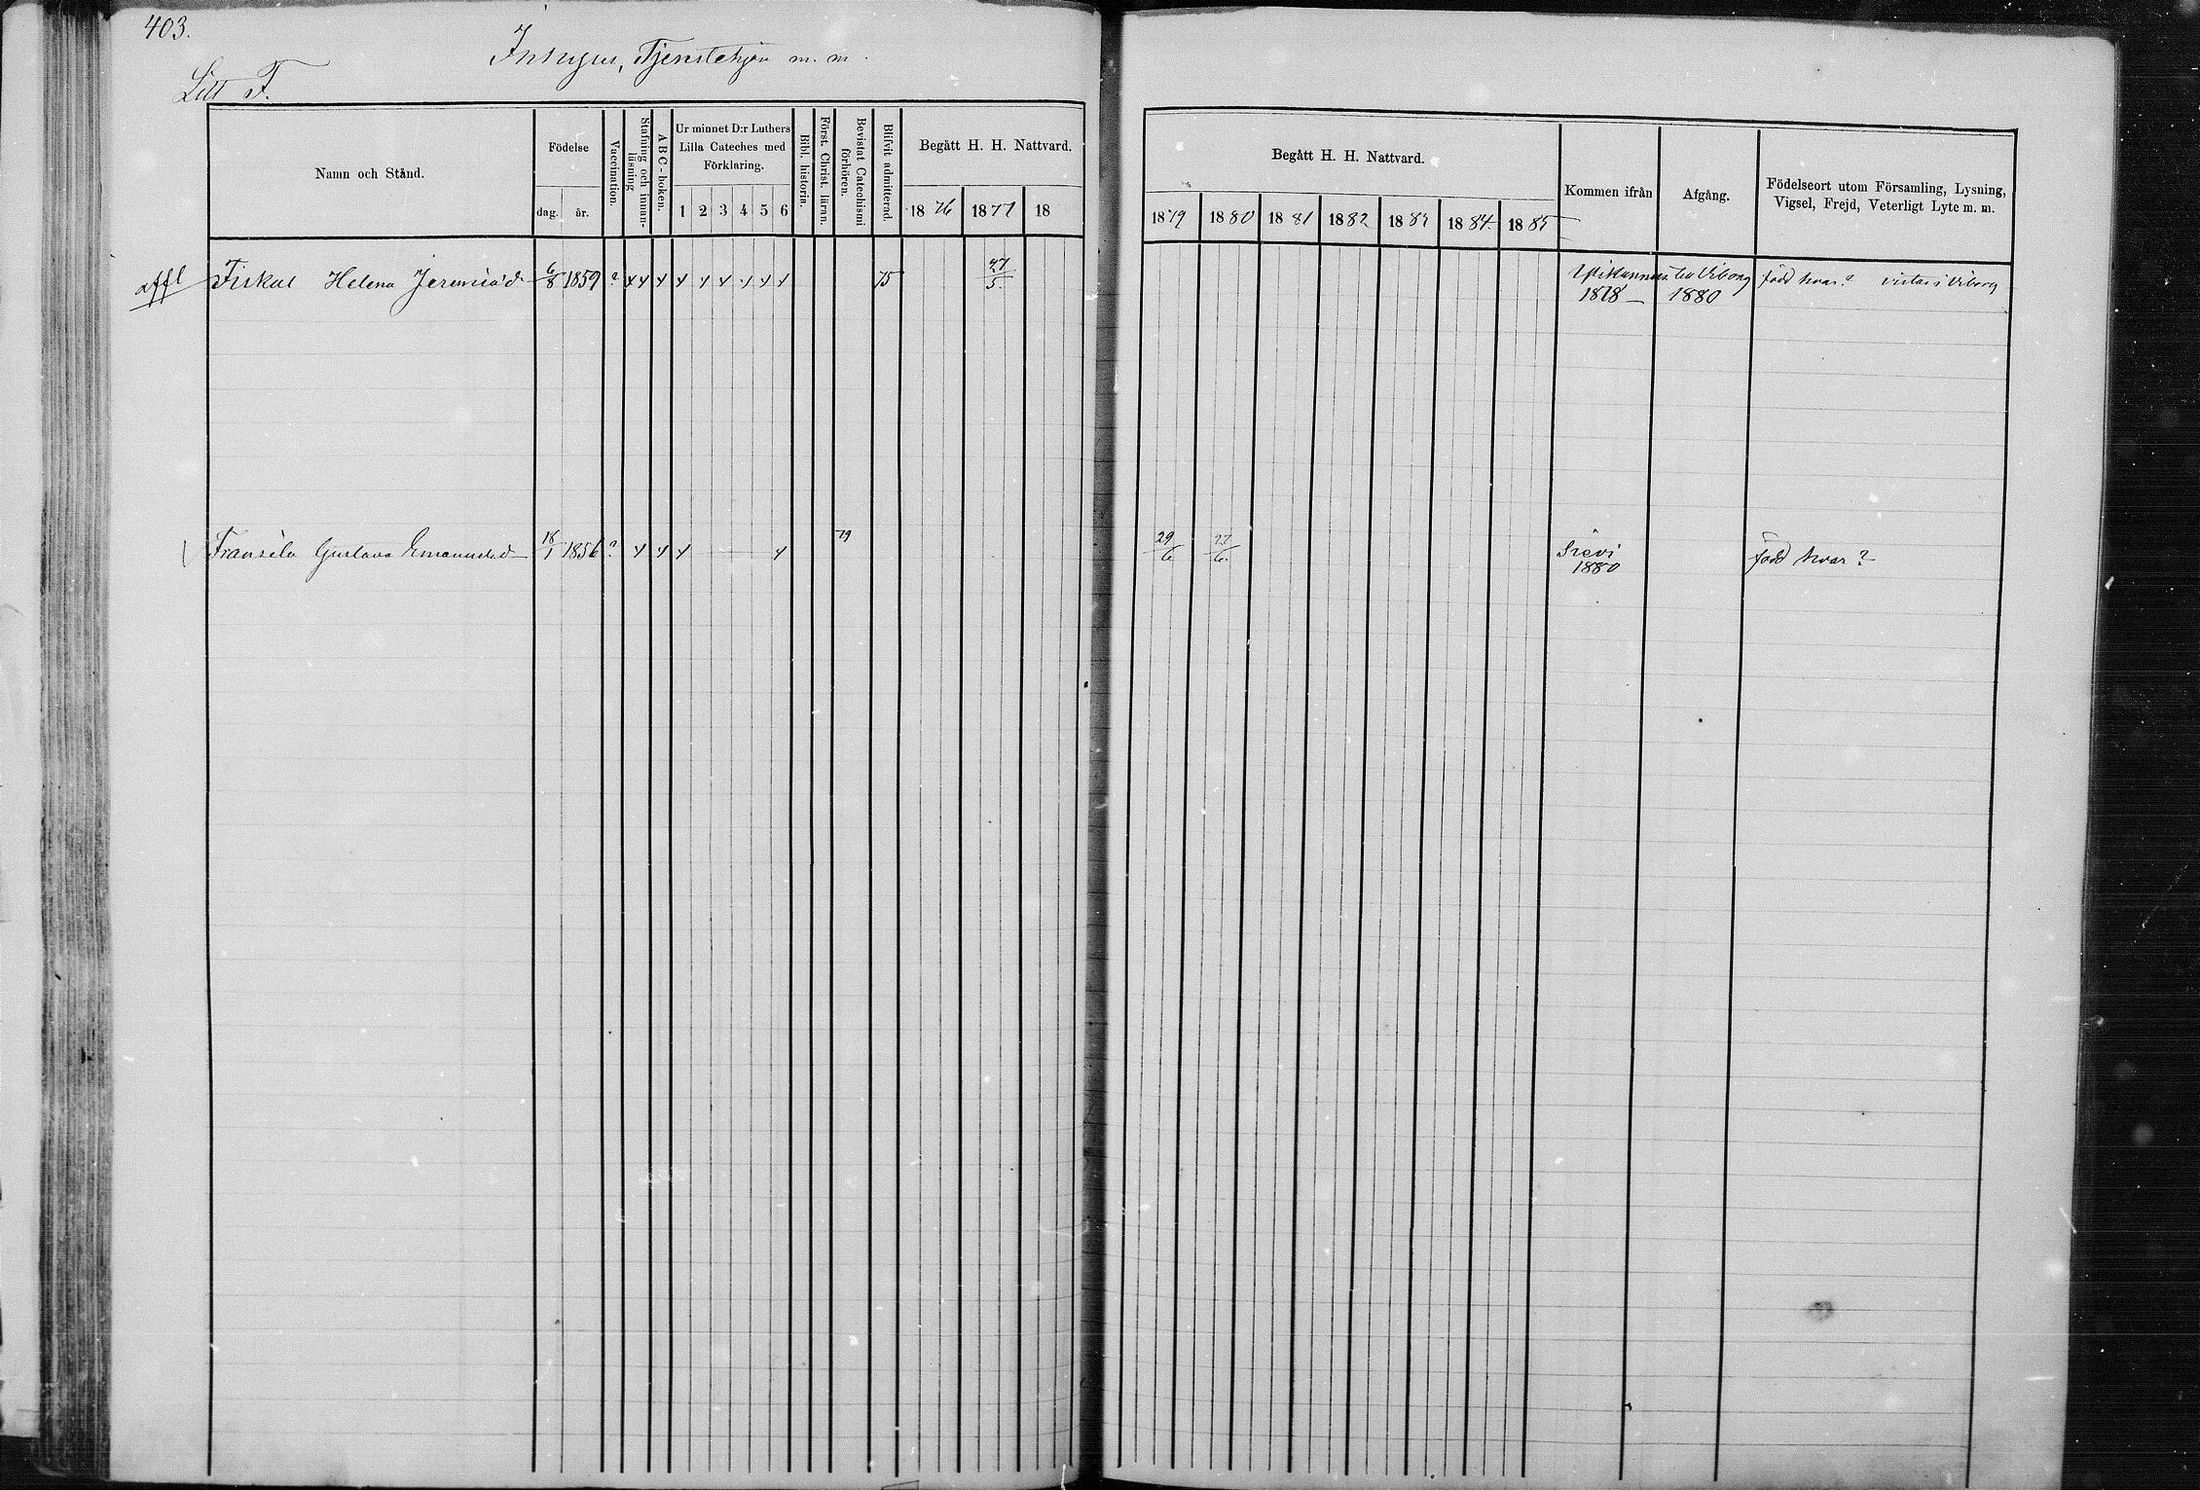 403.
Litt F.
Inhyses, Tjenstehjon m. m.
Namn och Stånd.
Födelse
dag. år.
Vaccination.
Stafning och innan-läsning
A B C - boken.
Ur minnet D:r Luthers
Lilla Cateches med
Förklaring.
1 2 3 4 5 6
Bibl. historia.
Först. Christ. läran.
Bevistat Catechismi förhören.
Blifvit admitterad.
Begått H. H. Nattvard.
1876 1877 18
Begått H. H. Nattvard.
1879 1880 1881 1882 1883 1884 1885
Kommen ifrån
Afgång.
Födelseort utom Församling, Lysning,
Vigsel, Frejd, Veterligt Lyte m. m.
affl Fiskal Helena Jeremiasd 6/8 1859 ? 75 27/5 till Viborg född hvar? vistas i Viborg
1878 1880
Fransila Gustava Emanuelsd 18/1 1856 ? 79 29/6 27/6 Sievi född hvar?
1880